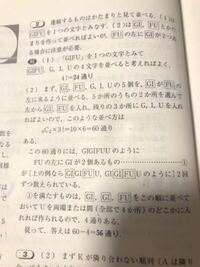 2 連続するものはかたまりと見て並べる。(1)は
GIFU を1つの文字とみなす。(2)は GI, FU をかた
まりを作って並べればよいが, FU の左に GI が2つあ
る場合に注意が必要。
解 (1) 「GIFU」を1つの文字とみて
GIFU, G, I, U の4文字を並べると考えればよく,
4!=24通り
(2) まず, G, I, U の5個を, GI が FU の
左に来るように並べる。5か所のうちの2か所を選んで
左から GI, FU を入れ, 残りの3か所に G, I, U を入れ
ればよいので, このような並べ方は
₅C₂×3!=10×6=60通り
ある。
この60通りには, GIGIFUU のように
FU の左に GI が2個あるもの ――①
が(上の例なら GI GI FU U, GI GI FU U のように)2回
ずつ数えられている。
①を満たすものは, GI, GI, FU をこの順に並べ
ておいて U を両端または間(全部で4か所)のどこかに入
れれば作られるので, 4通りある。
従って, 答えは 60-4=56通り.
3 (2) まず K が隣り合わない順列(A は隣り